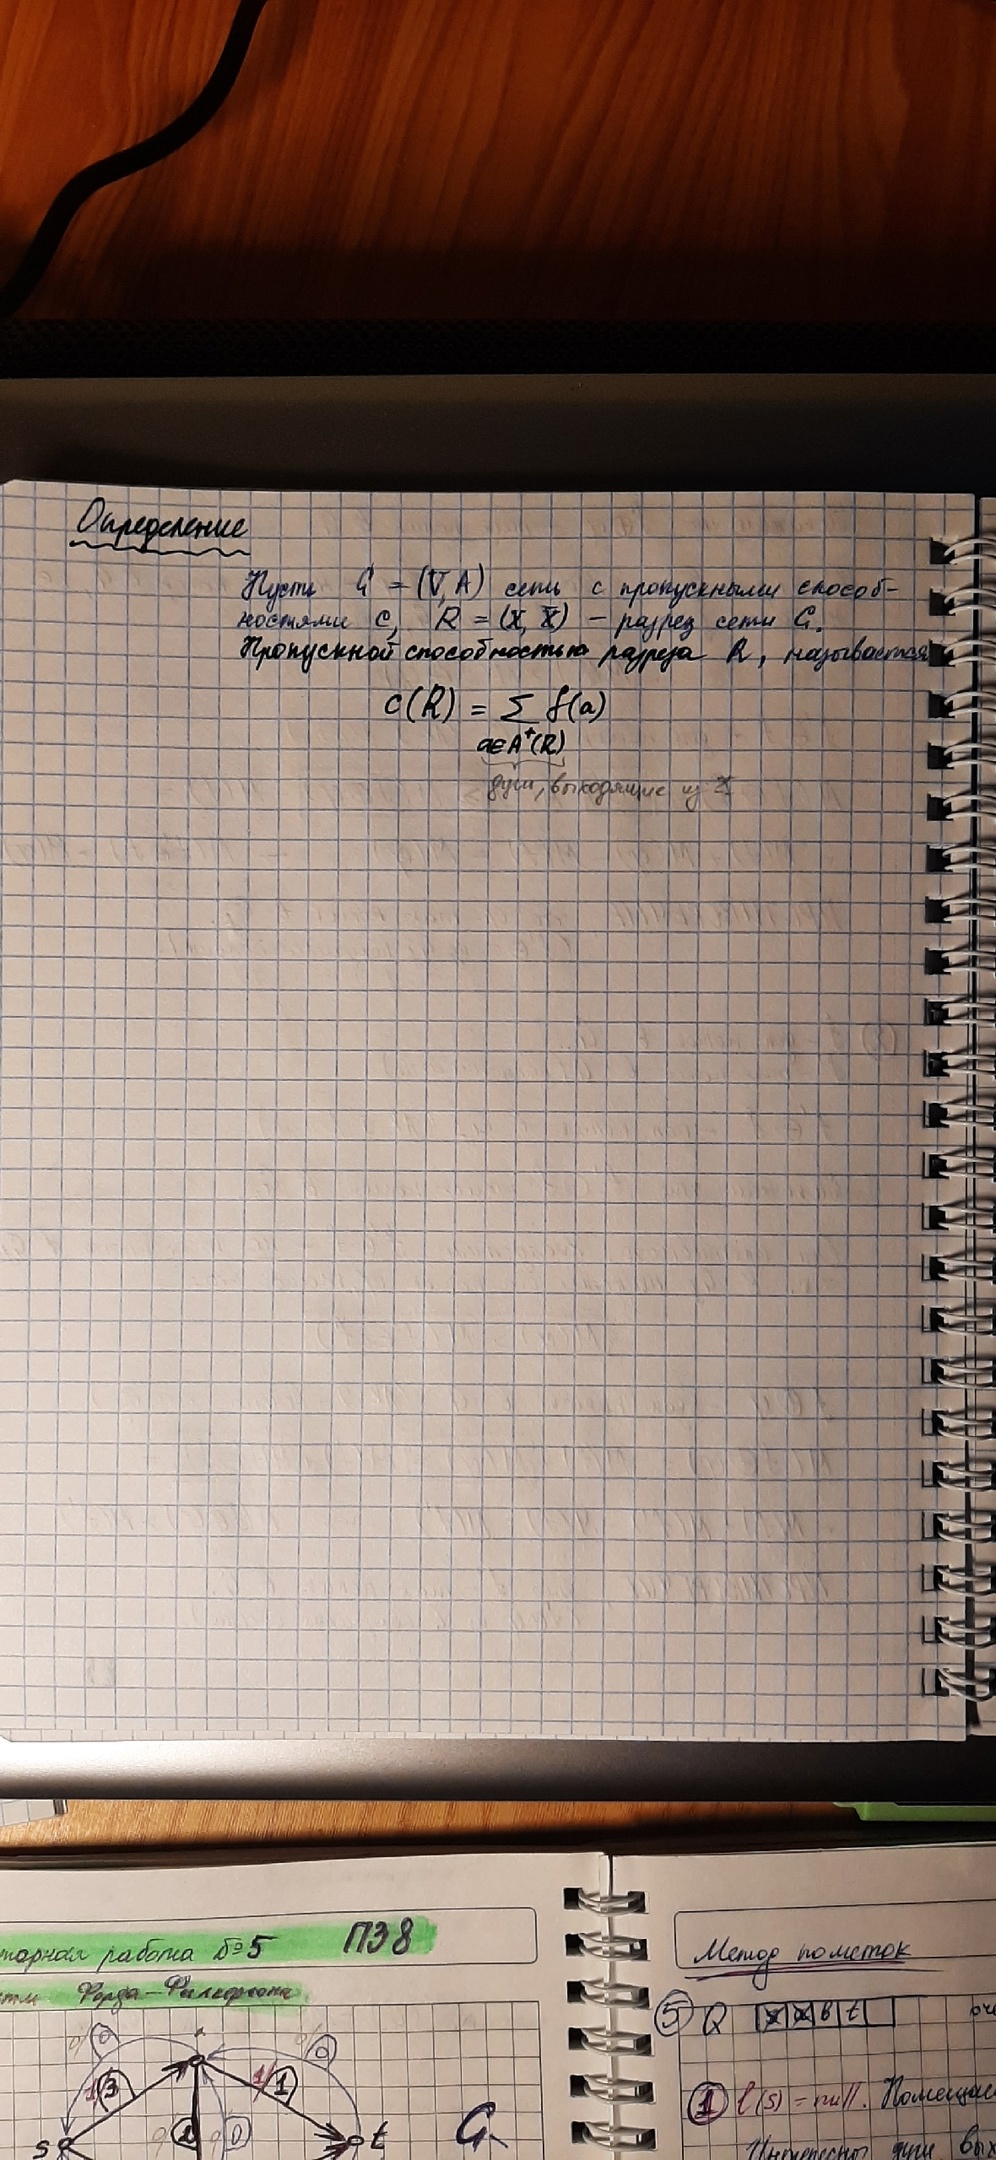 Определение
Пусть G = (V, A) сеть с пропускными способ-
ностями c, R = (X, X̅) – разрез сети G.
Пропускной способностью разреза R, называется
c(R) = Σ f(a)
a∈A⁺(R)
дуги, выходящие из X
торная работа №5 ПЗ 8
Форда-Фалкерсона
Метод пометок
5 Q b t
1 l(s) = null. Помещае
0 0
1/3 1/1
s 0 t G
Интересны дуги, вых